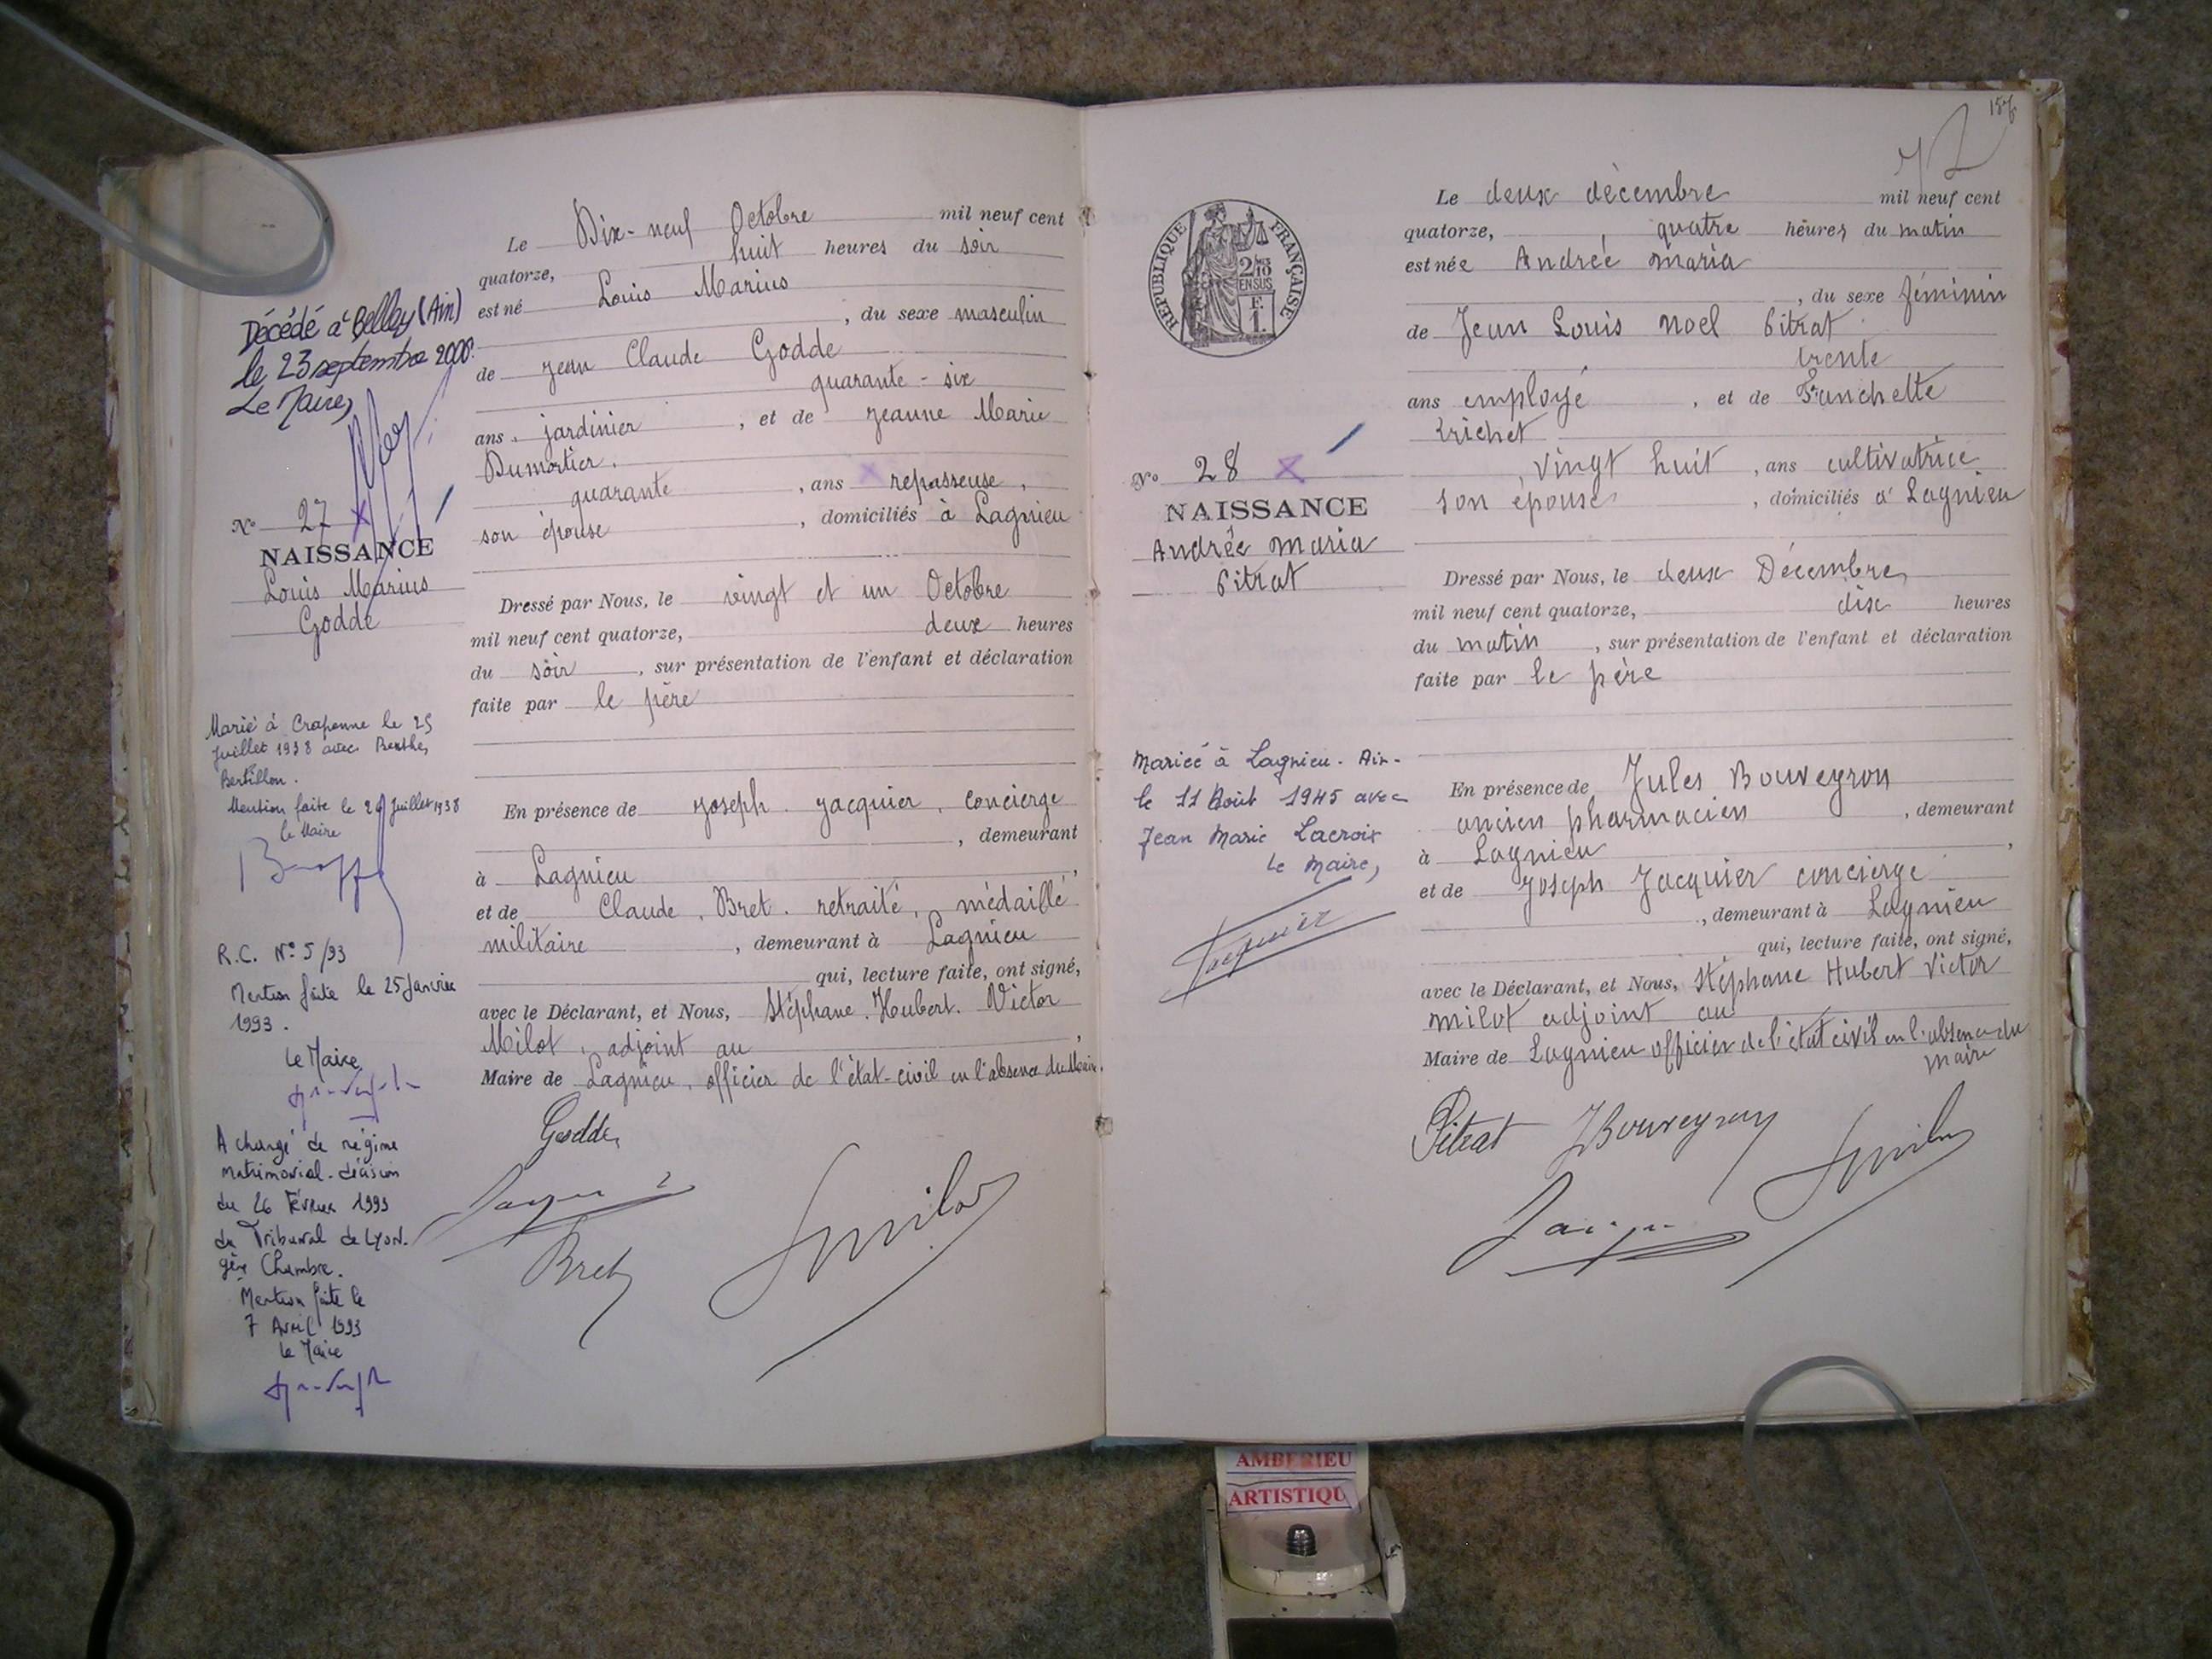 Décédé à Belley (Ain)
le 23 septembre 2000.
Le Maire,
N° 27
NAISSANCE
Louis Marius
Godde
Marié à Craponne le 25
Juillet 1938 avec Berthe,
Bertillon.
Mention faite le 29 Juillet 1938
le Maire
R.C. N° 5/93
Mention faite le 25 Janvier
1993.
Le Maire
A changé de régime
matrimonial. décision
du 26 Février 1993
du Tribunal de Lyon.
Chambre.
Mention faite le
7 Avril 1993
Le Maire
Le Dix-neuf Octobre mil neuf cent
quatorze, huit heures du soir
est né Louis Marius
, du sexe masculin
de Jean Claude Godde
quarante-six
ans, jardinier, et de Jeanne Marie
Dumortier.
quarante, ans repasseuse,
son épouse, domiciliés à Lagnieu
Dressé par Nous, le vingt et un Octobre
mil neuf cent quatorze, deux heures
du soir, sur présentation de l'enfant et déclaration
faite par le père
En présence de Joseph Jacquier, concierge
, demeurant
à Lagnieu,
et de Claude, Bret. retraité, médaillé
militaire, demeurant à Lagnieu
qui, lecture faite, ont signé,
avec le Déclarant, et Nous, Stéphane. Hubert. Victor
Milot, adjoint au,
Maire de Lagnieu, officier de l'état-civil en l'absence du Maire.
Godde
Bret
157
72
RÉPUBLIQUE FRANÇAISE
2/10
EN SUS
F.
1.
N° 28
NAISSANCE
Andrée Maria
Pitrat
Mariée à Lagnieu - Ain -
le 11 Août 1945 avec
Jean Marie Lacroix
Le Maire,
Le deux décembre mil neuf cent
quatorze, quatre heures du matin
est née Andrée Maria
, du sexe féminin
de Jean Louis Noel Pitrat
trente
ans employé, et de Franchette
Trichet
, vingt huit, ans cultivatrice
son épouse, domiciliés à Lagnieu
Dressé par Nous, le deux Décembre,
mil neuf cent quatorze, dix heures
du matin, sur présentation de l'enfant et déclaration
faite par le père
En présence de Jules Bouveyron
ancien pharmacien, demeurant
à Lagnieu,
et de Joseph Jacquier concierge
, demeurant à Lagnieu
qui, lecture faite, ont signé,
avec le Déclarant, et Nous, Stéphane Hubert Victor
Milot adjoint au
Maire de Lagnieu officier de l'état civil en l'absence du
maire
Pitrat JBouveyron
AMBERIEU
ARTISTIQU